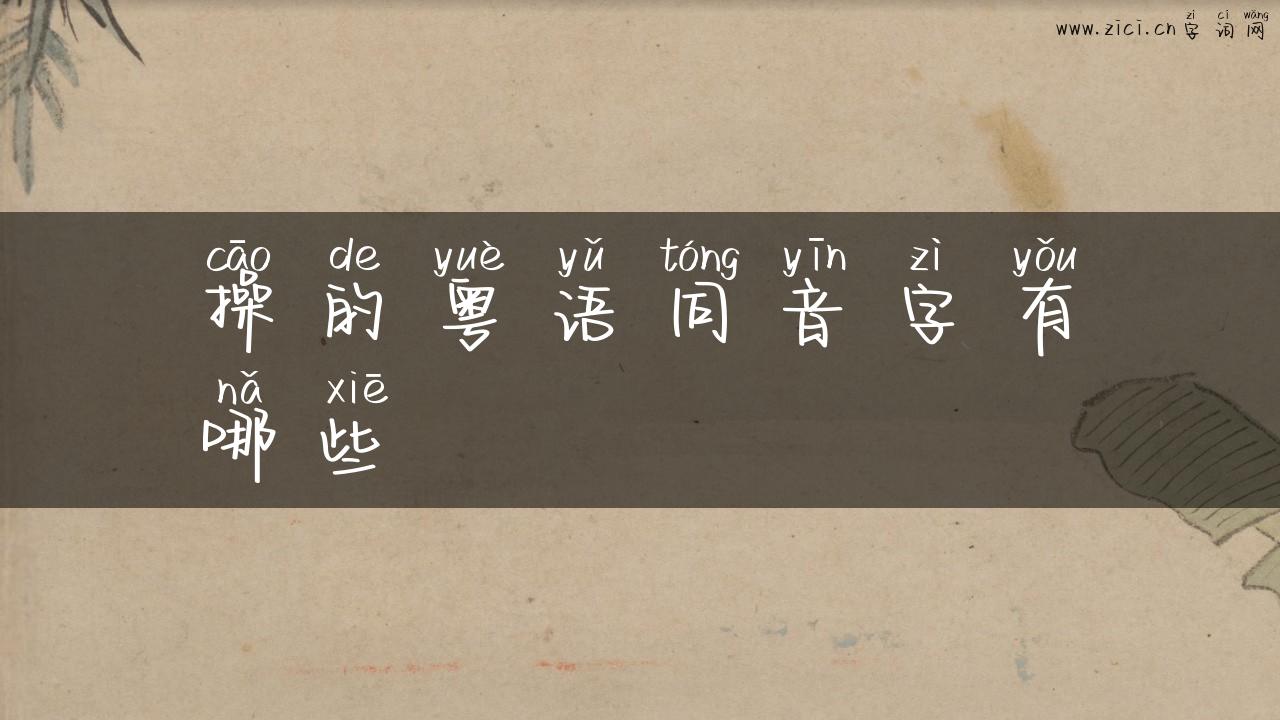 zì cí wǎng
www.zici.cn 字词网
cāo de yuè yǔ tóng yīn zì yǒu
操的粤语同音字有
nǎ xiē
哪些